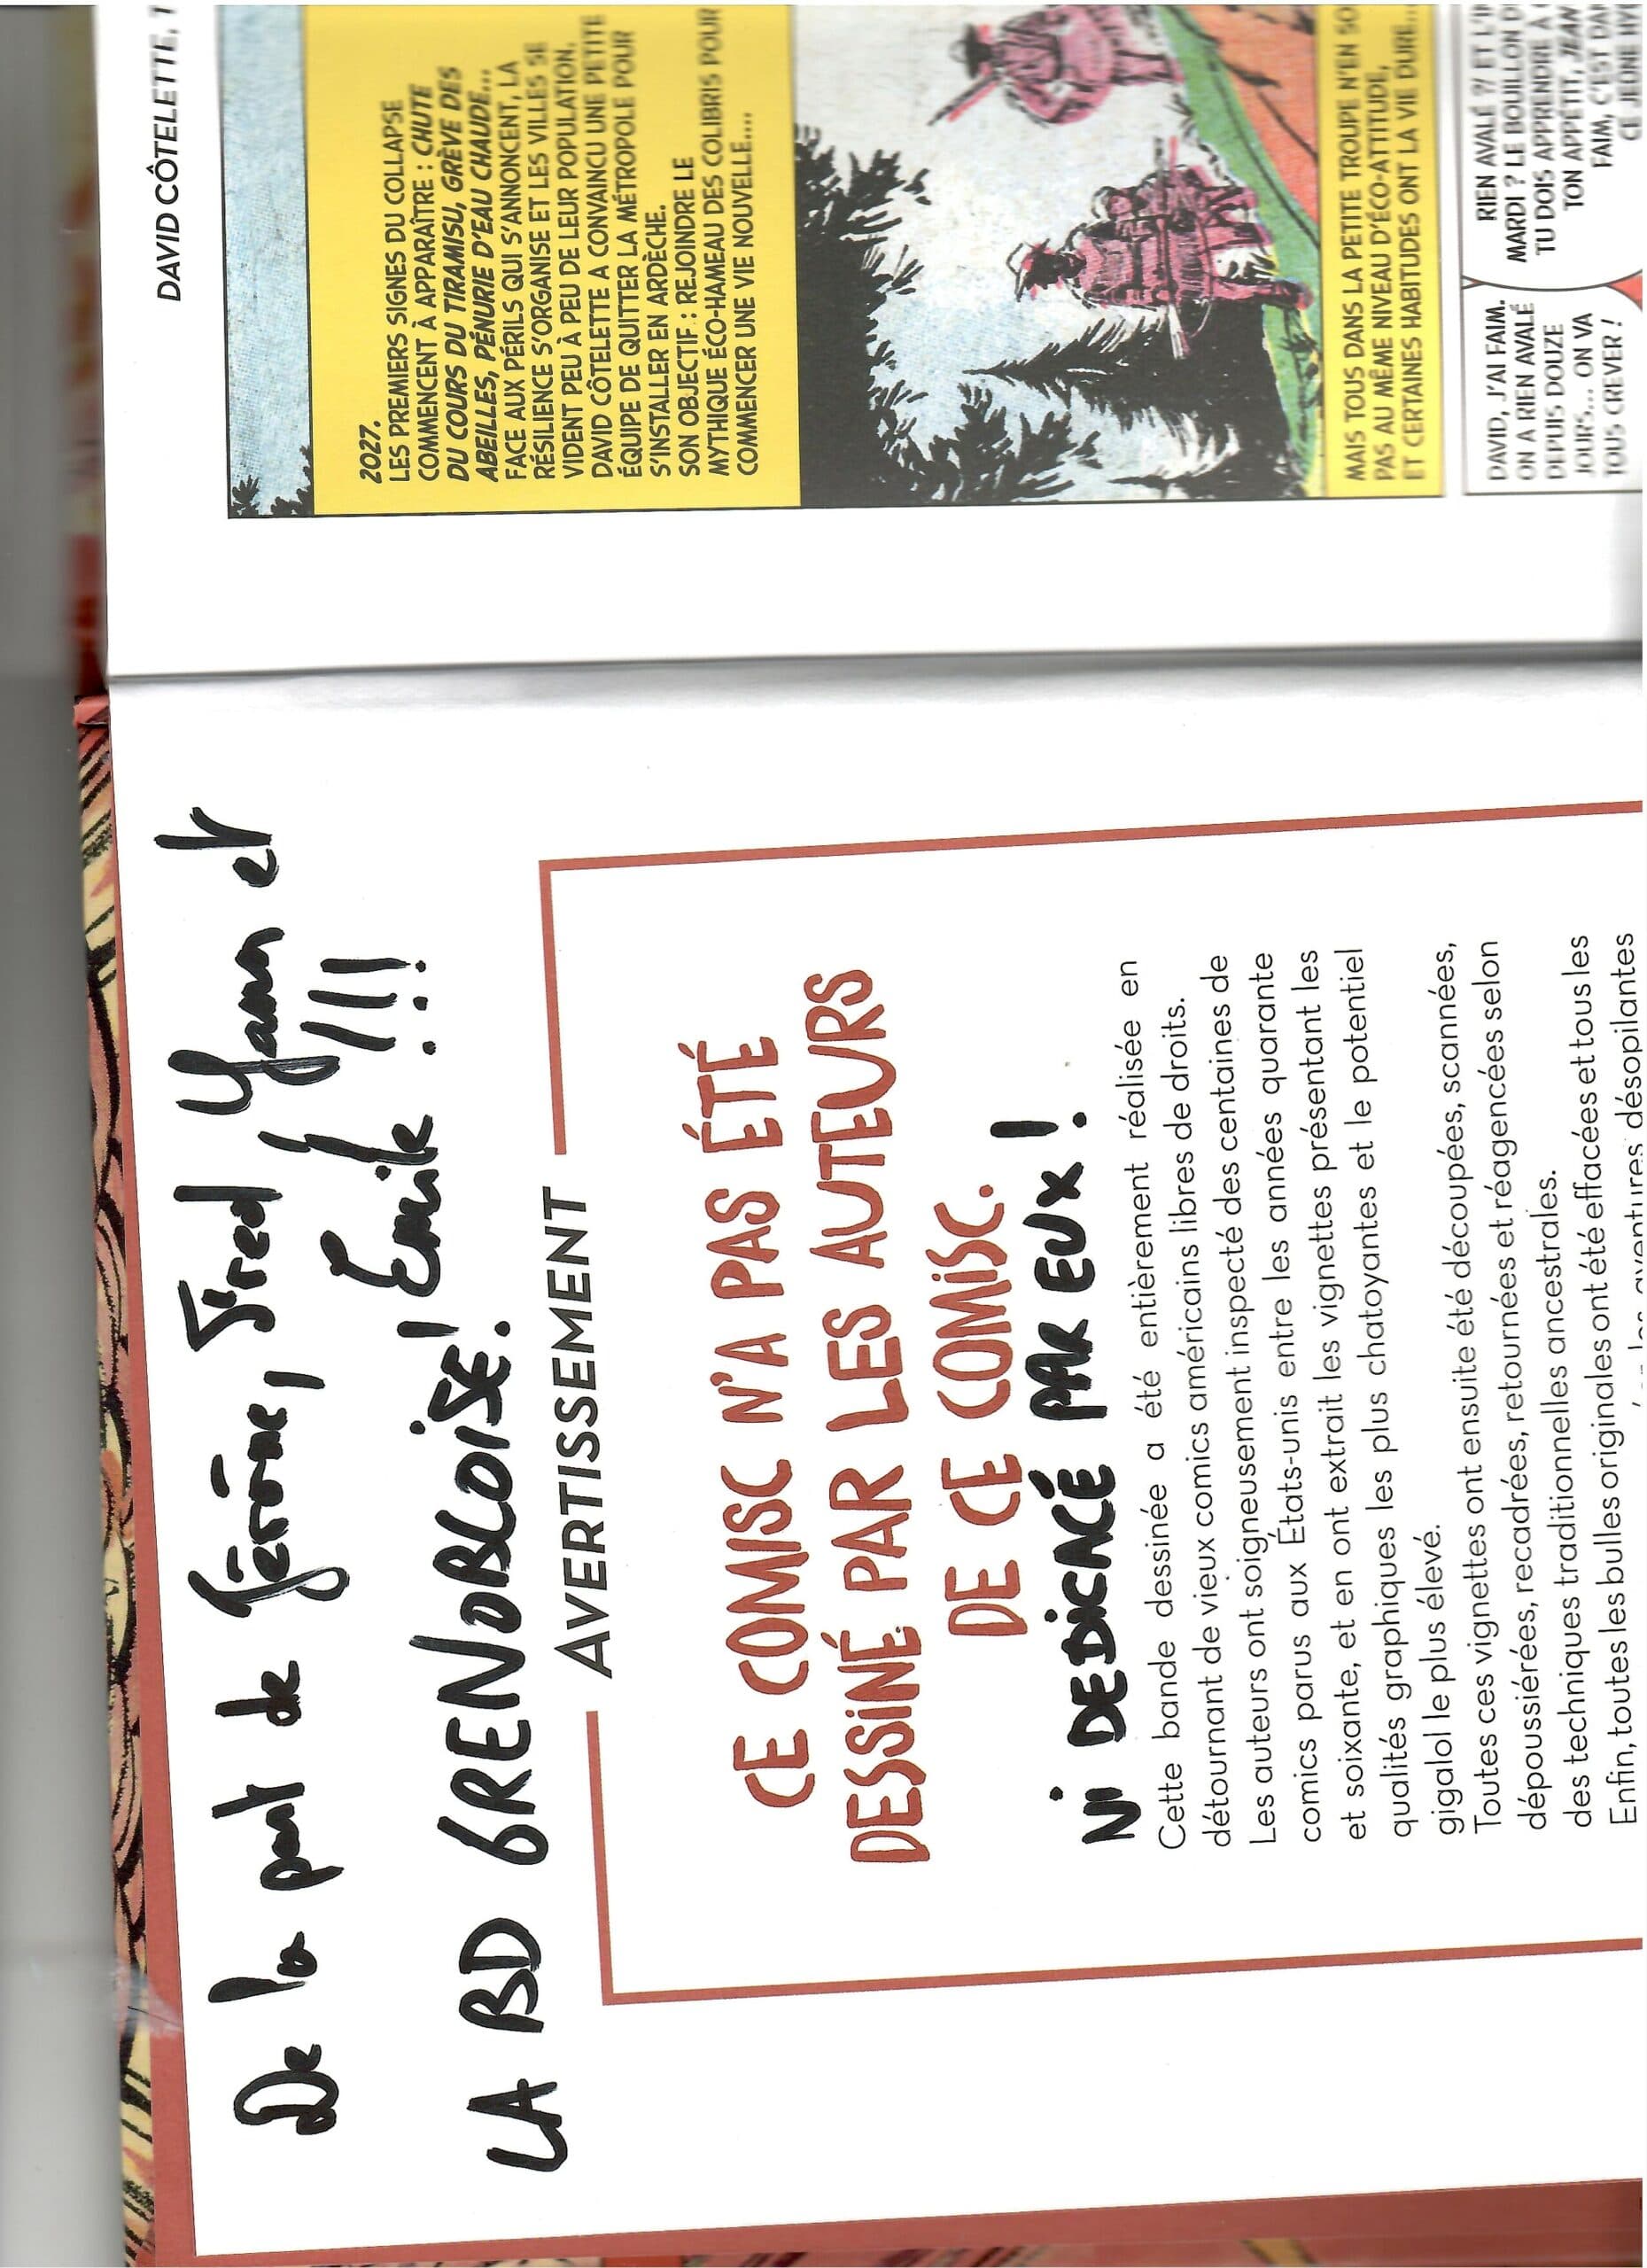 De la part de Jérôme, Fred, Yann et
Emile !!!
LA BD GRENOBLOISE !
AVERTISSEMENT
CE COMISC N'A PAS ÉTÉ
DESSINÉ PAR LES AUTEURS
DE CE COMISC.
Ni DEDICACÉ PAR EUX !
Cette bande dessinée a été entièrement réalisée en
détournant de vieux comics américains libres de droits.
Les auteurs ont soigneusement inspecté des centaines de
comics parus aux États-unis entre les années quarante
et soixante, et en ont extrait les vignettes présentant les
qualités graphiques les plus chatoyantes et le potentiel
gigalol le plus élevé.
Toutes ces vignettes ont ensuite été découpées, scannées,
dépoussiérées, recadrées, retournées et réagencées selon
des techniques traditionnelles ancestrales.
Enfin, toutes les bulles originales ont été effacées et tous les
aventures désopilantes
DAVID CÔTELETTE,
2027.
LES PREMIERS SIGNES DU COLLAPSE
COMMENCENT À APPARAÎTRE : CHUTE
DU COURS DU TIRAMISU, GRÈVE DES
ABEILLES, PÉNURIE D'EAU CHAUDE...
FACE AUX PÉRILS QUI S'ANNONCENT, LA
RÉSILIENCE S'ORGANISE ET LES VILLES SE
VIDENT PEU À PEU DE LEUR POPULATION.
DAVID CÔTELETTE A CONVAINCU UNE PETITE
ÉQUIPE DE QUITTER LA MÉTROPOLE POUR
S'INSTALLER EN ARDÈCHE.
SON OBJECTIF : REJOINDRE LE
MYTHIQUE ÉCO-HAMEAU DES COLIBRIS POUR
COMMENCER UNE VIE NOUVELLE....
MAIS TOUS DANS LA PETITE TROUPE N'EN SO
PAS AU MÊME NIVEAU D'ÉCO-ATTITUDE,
ET CERTAINES HABITUDES ONT LA VIE DURE...
DAVID, J'AI FAIM.
ON A RIEN AVALÉ
DEPUIS DOUZE
JOURS... ON VA
TOUS CREVER !
RIEN AVALÉ ?! ET L'
MARDI ? LE BOUILLON D
TU DOIS APPRENDRE À
TON APPÉTIT, JEAN
FAIM, C'EST DAN
CE JEÛNE